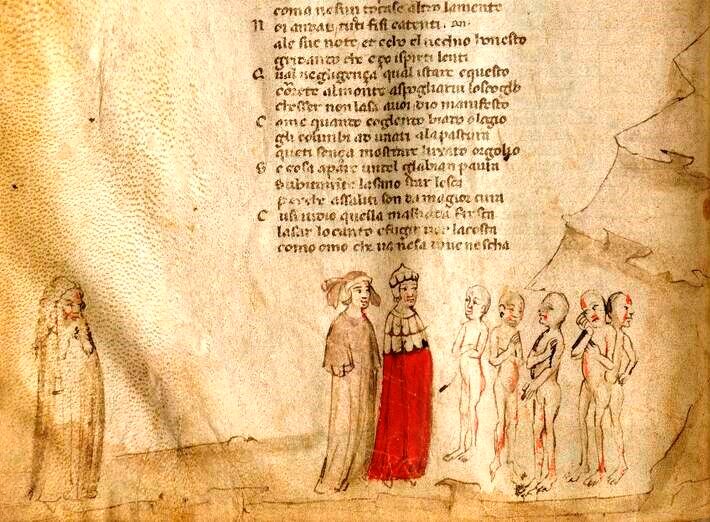 coma nesun tocase altro lamente
N oi andau tuti fisi eatenti. on.
ale sue note et echo el uechio honesto
gridando che e ço ispiriti lenti
Q ual negligença qual istare equesto
C orete almonte aspogliarui loscoglo
chesser non lasa auoi dio manifesto
C ome quando coglendo biado olaglo
gli columbi ad unati ala pastura
queti sença mostrare luxato orgoglo
S e cosa apare undel glabian paura
subitamente lasano star lesca
perche assaliti son da magior cura
C usi uidio quella masnada fresca
lasar lo canto efugir uer lacosta
como omo che ua nesa doue rescha